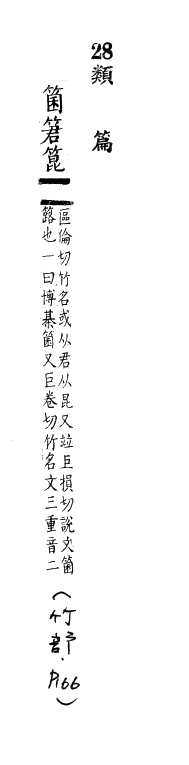 28類篇
箘箬箟
區倫切竹名或从君从昆又竝巨損切說文箘
簬也一曰博棊箘又巨卷切竹名文三重音二
(竹部.P.166)